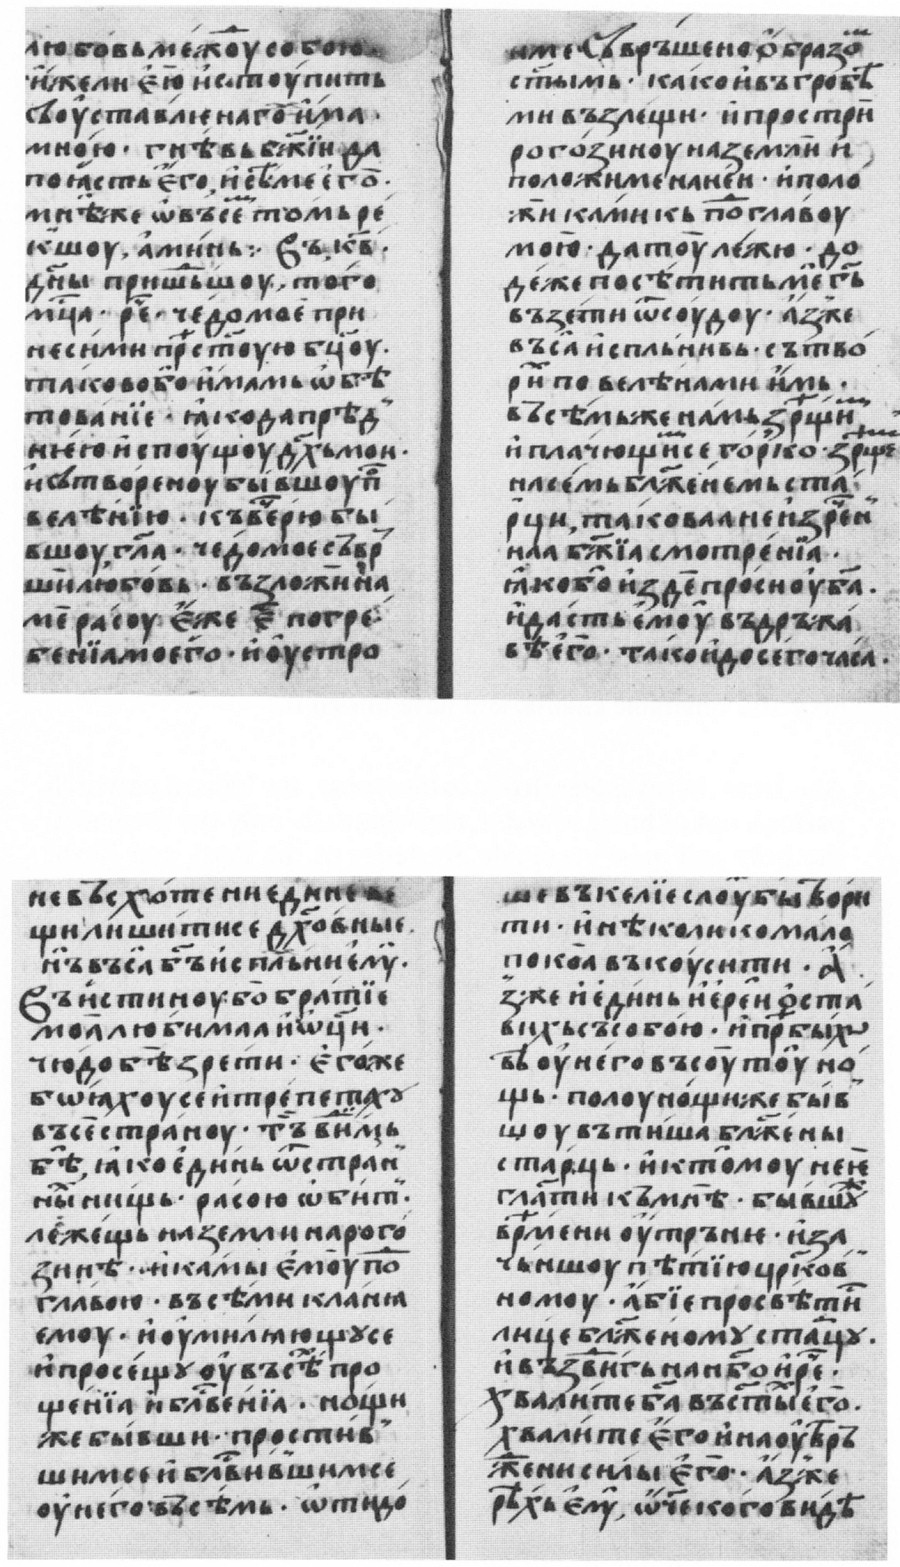 любовь межоу собою.
иже ли ѥю ѿстоупить
своуставлѥнаго има
мною. гнѣвь бжїи да
поꙗсть ѥго, и сь ме его.
мнѣже ѡ въсе томь ре
кшоу, аминь: Въ, кв.
дны пришьшоу, того
мца. ре. чедо мое при
неси ми прстоую бцоу.
таково бо имамь ѡбѣ
тованїе. ꙗко да прѣд
нѥю испоущоу дхь мои.
и сътвореноу бывшоу п
велѣнїю. къ верю бы
вшоу, гла. чедо мое съвр
ши любовь. възложи на
ме расоу ѥже ѥ погре
бенїа моего. и оустро
име съвръшено ѻбразо
стымь. како и въ гробѣ
ми възлещи. и простри
рогозиноу на земли и
положи ме на неи. и поло
жи камикь по главоу
мою. да тоу лежю. до
деже посѣтить ме гь
възети ѿсоудоу. азже
въса испльнивь. сътво
ри повелѣнами имь.
въсѣмь же намь зрщи
и плачющи се горко. зрще
на семь блженемь ста
рци, таковаа неизрен
наа бжїа смотренїа.
ꙗко бо изде просноу ба.
и дасть емоу въдръжа
вѣ его. тако и до сего часа.
не въсхоте ни един не ве
щи лишити се дховные.
нъ въса бъ испльни ѥму.
Въистиноу бо братїе
моꙗ любимаа и ѡци.
чюдо бѣ зрети. ѥгоже
боꙗхоу се и трепетаху
въсе страноу. тъ видмь
бѣ, ꙗко единь ѿ стран
ны нищь. расою ѡбит.
лежещь на земли на рого
зинѣ. и камы ѥмоу по
главою. въсѣми кланꙗ
емоу. и оумилꙗющу се
и просещу оу въсѣ про
щенїа и блвенїа. нощи
же бывши. простив
шим се и блвившим се
оу него въсѣмь. ѡтидо
ше въ келїе слоубы твори
ти. и нѣколико мало
покоа въкоусити. А
зже и единь иереи ѻста
вихь съ собою. и прбыхѡ
вь оу него въсоу тоу но
щь. полоунощи же быв
шоу въ тиша блжены
старць. и к томоу не не
глати къ мнѣ. бывшу
врмени оутръне. и за
чьншоу пѣтїю црков
номоу. абїе просвѣти
лице блженому старцу.
и въздвигь на нбо и ре.
хвалите ба въ сты его.
хвалите ѥго и на оутвръ
жени силы ѥго. Азже
рѣхь ѥму, ѡче кого видѣ